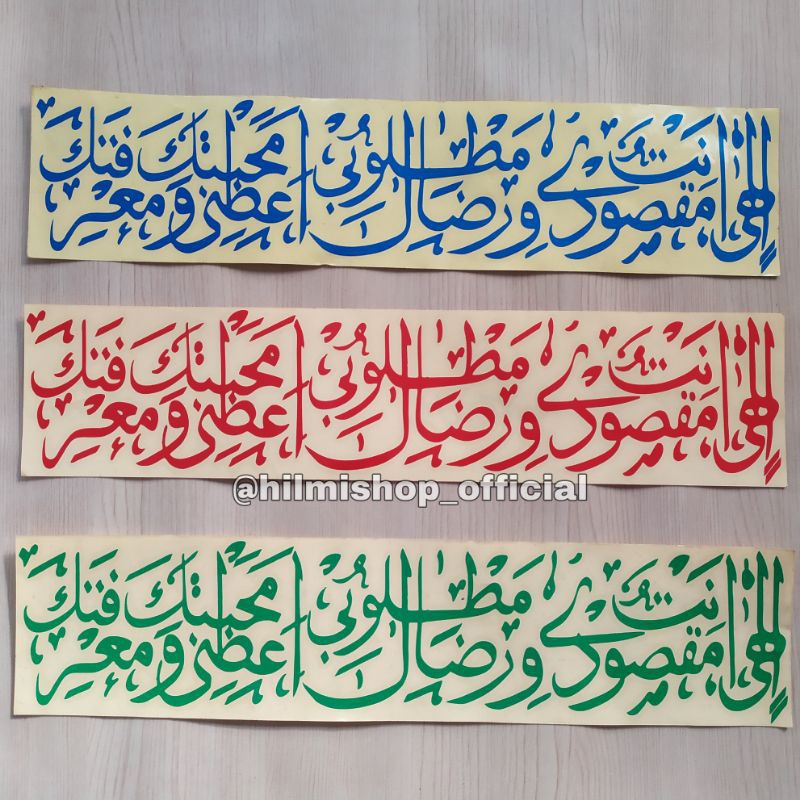 إلهي أنت مقصودي ورضاك مطلوبي أعطني محبتك ومعرفتك
إلهي أنت مقصودي ورضاك مطلوبي أعطني محبتك ومعرفتك
@hilmishop_official
إلهي أنت مقصودي ورضاك مطلوبي أعطني محبتك ومعرفتك